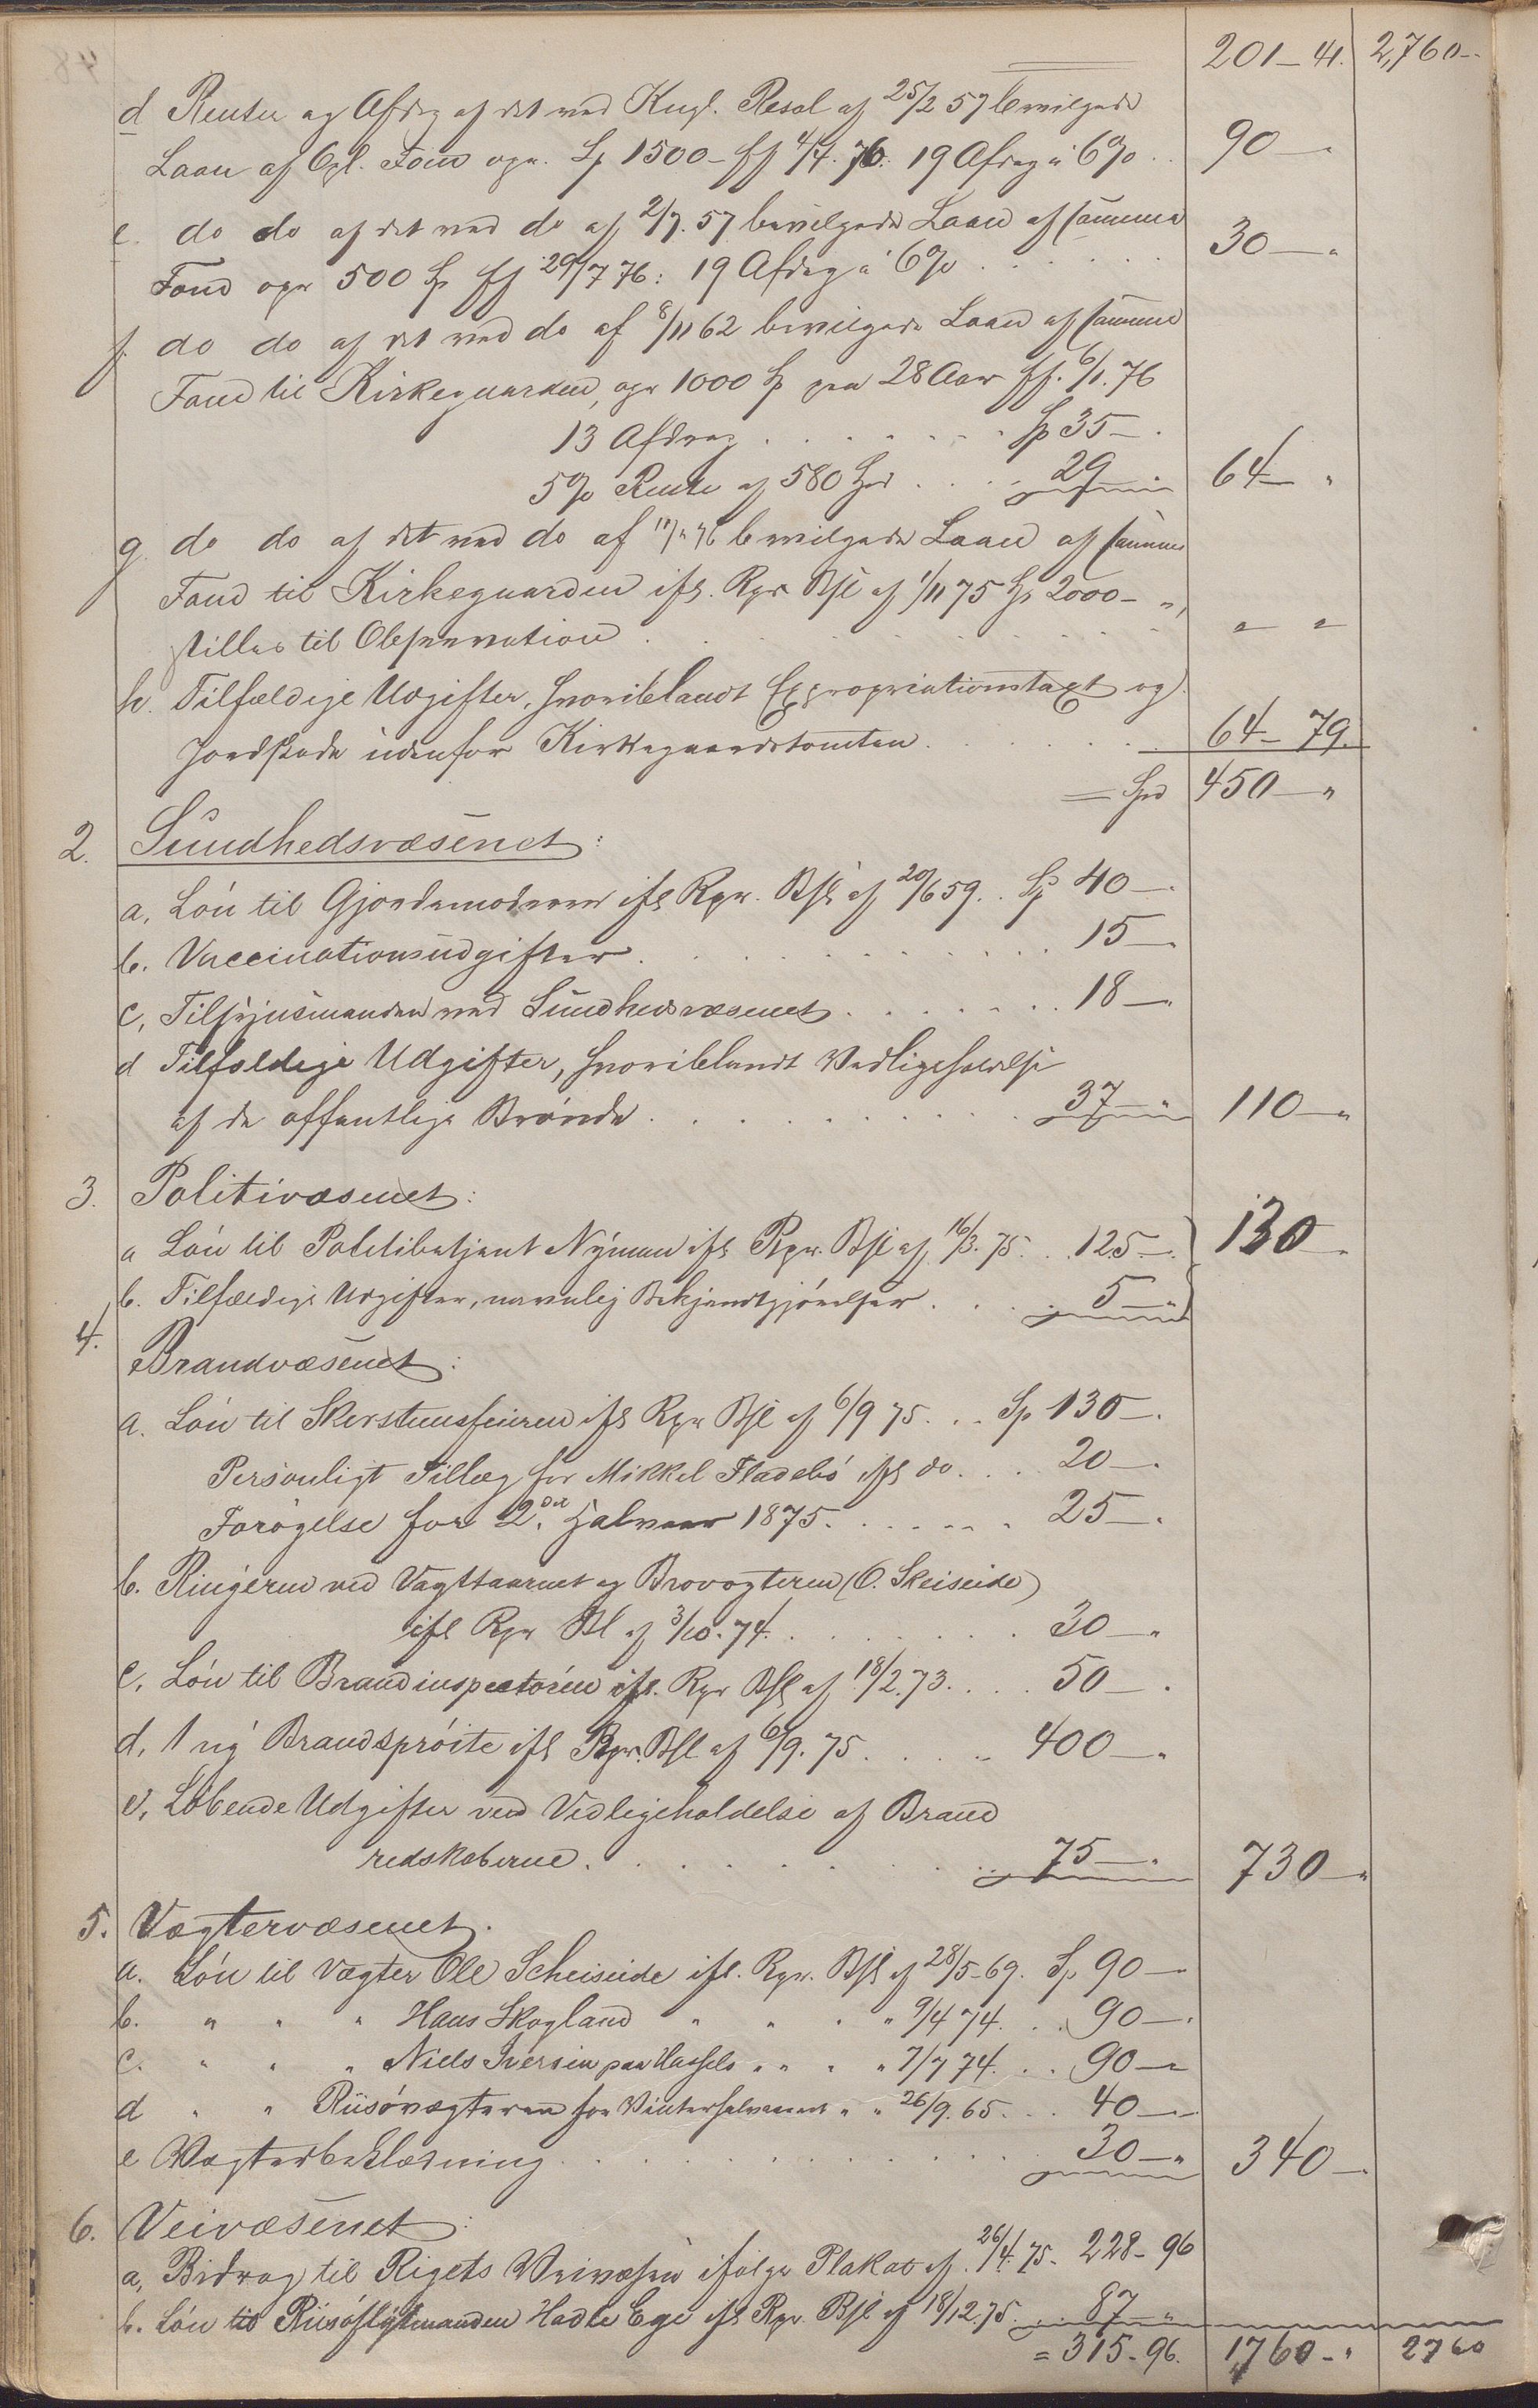 201 - 41. 2,760 -
d Renter og Afdrag af det ved Kngl. Resol af 25/2 57 bevilgede
Laan af Opl. Fond opr. Sp 1500 - ff 4/4. 76: 19 Afdrag à 6% . . 90 - "
e. do do af det ved do af 2/7. 57 bevilgede Laan af samme
Fond opr 500 Sp ff 29/7 76: 19 Afdrag à 6% . . . . . . 30 - "
f. do do af det ved do af 8/11 62 bevilgede Laan af samme
Fond til Kirkegaarden, opr 1000 Sp paa 28 Aar ff. 6/1. 76
13 Afdrag . . . . . . . Sp 35 - .
5% Rente af 580 Spd . . . . 29 - " 64 - "
g. do do af det ved do af bevilgede Laan af samme
Fond til Kirkegaarden ifl. Rpr Bsl af 1/11 75 Sp 2000 - ",
stilles til Observation . . . . . . . . . " "
h. Tilfældige Udgifter, hvoriblandt Expropriationstaxt og
Jordskade udenfor Kirkegaardstomten . . . . . . 64 - 79.
= Spd 450 - "
2. Sundhedsvæsenet:
a. Løn til Gjordemoderen ifl Rpr. Bsl af 20/6 59. . Sp 40 - .
b. Vaccinationsudgifter . . . . . . . . . 15 - .
c. Tilsynsmanden ved Sundhedsvæsenet . . . . . . . 18 - "
d Tilfældige Udgifter, hvoriblandt Vedligeholdelse
af de offentlige Brønde . . . . . . . . . 37 - " 110 - "
3. Politivæsenet:
a Løn til Politibetjent Nyman ifl Rpr. Bsl af 16/3. 75. . . 125 - . 130 - .
b. Tilfældige Udgifter, navnlig Bekjendtgjørelser . . . . 5 - "
4. Brandvæsenet:
a. Løn til Skorstensfeieren ifl Rpr Bsl af 6/9 75. . . Sp 130 - .
Personligt Tillæg for Mikkel Fladebø ifl do. . . . 20 - .
Forøgelse for 2.det Halvaar 1875. . . . . . . 25 - .
b. Ringeren ved Vagttaarnet og Brovogteren (O. Skeiseide)
ifl Rpr Bl af 3/10. 74. . . . . . . . . 30 - "
c, Løn til Brandinspectøren ifl. Rpr Bsl af 18/2. 73. . . . 50 - .
d, 1 ny Brandsprøite ifl Rpr. Bsl af 6/9. 75 . . . . . 400 - "
e, Løbende Udgifter ved Vedligeholdelse af Brand
redskaberne . . . . . . . . . . 75 - . 730 - "
5. Vægtervæsenet.
a. Løn til Vægter Ole Scheiseide ifl. Rpr. Bsl af 28/5 - 69. Sp 90 -
b. " " " Hans Skogland " " " " 9/4 74. . . 90 - .
c. " " " Niels Iversen paa Hassels " " " " 7/7 74. . . 90 - "
d " " Riisøvægteren for Vinterhalvaaret " " 26/9. 65. . . 40 - .
e Vægterbeklædning . . . . . . . . . 30 - " 340 - .
6. Veivæsenet:
a, Bidrag til Rigets Veivæsen ifølge Plakat af 26/4. 75. 228 - 96
b. Løn til Riisøflytmanden Hadle Ege ifl Rpr. Bsl af 18/12. 75. . . 87 - "
= 315 - 96. 1760 - " 2760